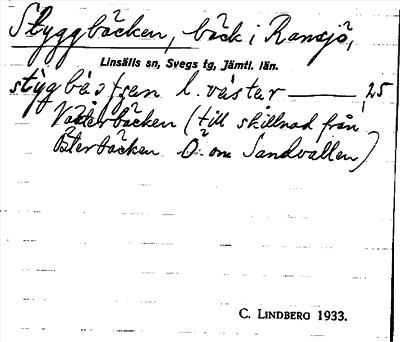 Styggbäcken, bäck i Ransjö,
Linsälls sn, Svegs tg, Jämtl. län.
l. väster 25
Västerbäcken (till skillnad från
Österbäcken Ö om Sandvallen)
C. LINDBERG 1933.